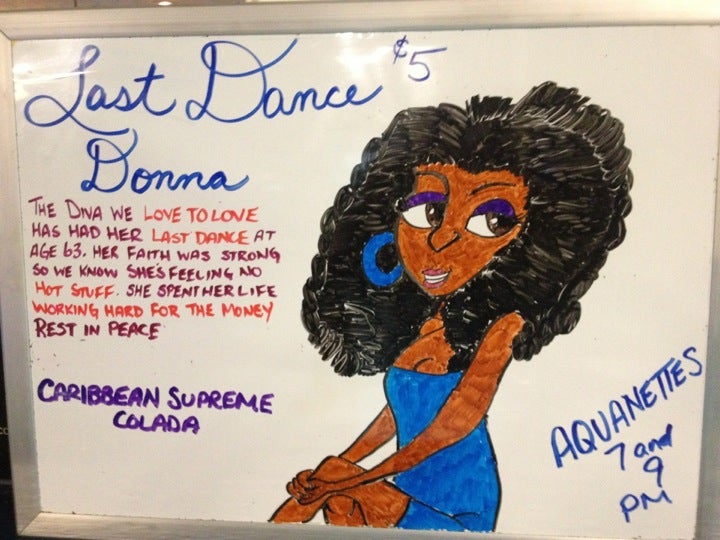 Last Dance $5
Donna
THE DIVA WE LOVE TO LOVE
HAS HAD HER LAST DANCE AT
AGE 63. HER FAITH WAS STRONG
SO WE KNOW SHE'S FEELING NO
HOT STUFF. SHE SPENT HER LIFE
WORKING HARD FOR THE MONEY
REST IN PEACE
CARIBBEAN SUPREME
COLADA
AQUANETTES
7 and
9
PM